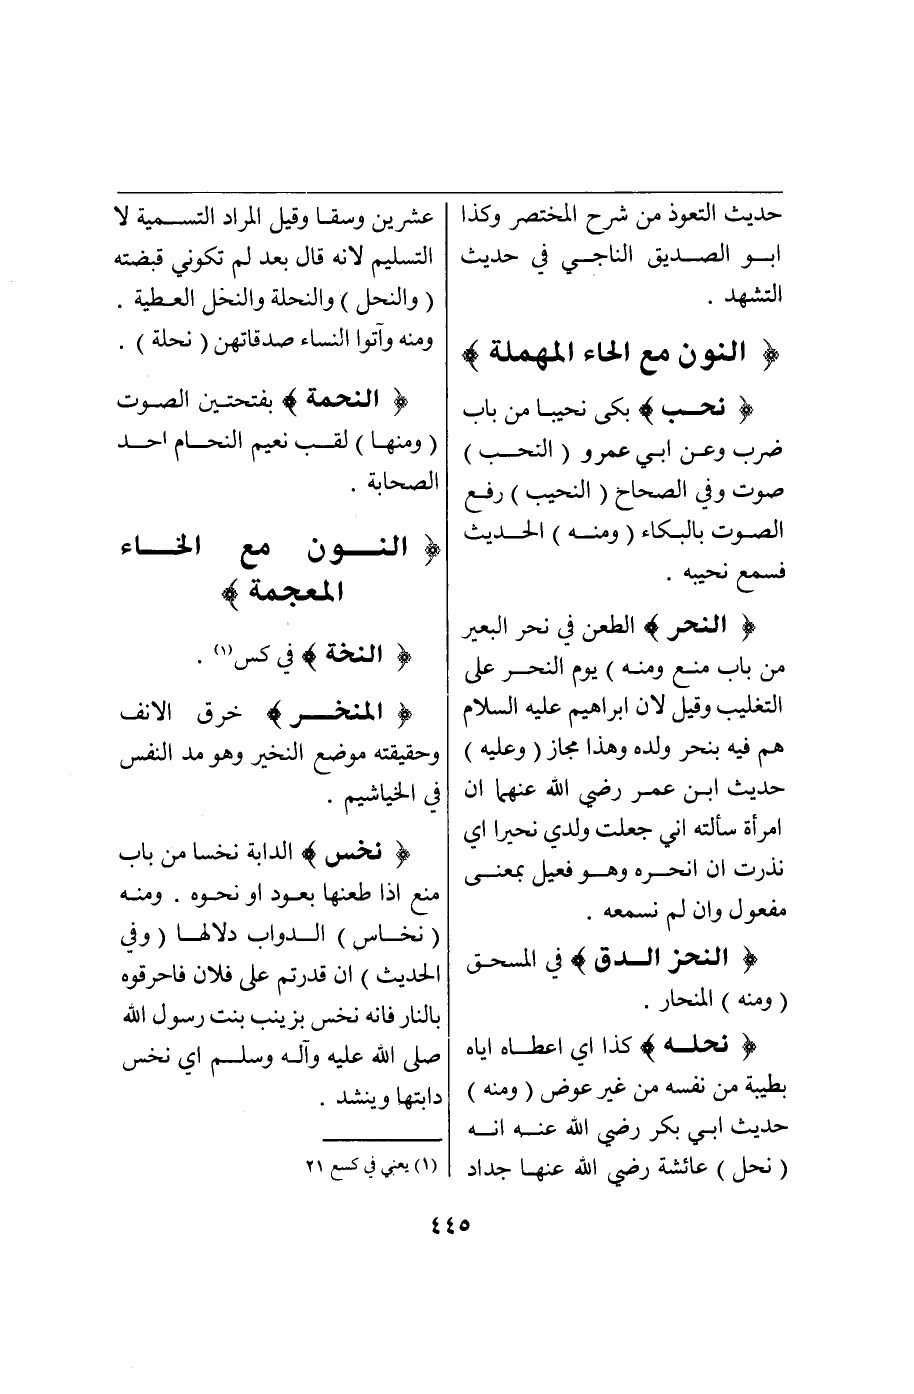 حديث التعوذ من شرح المختصر وكذا
ابو الصديق الناجي في حديث
التشهد .
﴿ النون مع الحاء المهملة ﴾
﴿ نحب ﴾ بكى نحيبا من باب
ضرب وعن ابي عمرو ( النحب )
صوت وفي الصحاح ( النحيب ) رفع
الصوت بالبكاء ( ومنه ) الحديث
فسمع نحيبه .
﴿ النحر ﴾ الطعن في نحر البعير
من باب منع ومنه ) يوم النحر على
التغليب وقيل لان ابراهيم عليه السلام
هم فيه بنحر ولده وهذا مجاز ( وعليه )
حديث ابن عمر رضي الله عنهما ان
امرأة سألته اني جعلت ولدي نحيرا اي
نذرت ان انحره وهو فعيل بمعنى
مفعول وان لم نسمعه .
﴿ النحز الدق ﴾ في المسحق
( ومنه ) المنحار .
﴿ نحله ﴾ كذا اي اعطاه اياه
بطيبة من نفسه من غير عوض ( ومنه )
حديث ابي بكر رضي الله عنه انه
( نحل ) عائشة رضي الله عنها جداد
عشرين وسقا وقيل المراد التسمية لا
التسليم لانه قال بعد لم تكوني قبضته
( والنحل ) والنحلة والنخل العطية .
ومنه وآتوا النساء صدقاتهن ( نحلة ) .
﴿ النحمة ﴾ بفتحتين الصوت
( ومنها ) لقب نعيم النحام احد
الصحابة .
﴿ النون مع الخاء
المعجمة ﴾
﴿ النخة ﴾ في كس(١) .
﴿ المنخر ﴾ خرق الانف
وحقيقته موضع النخير وهو مد النفس
في الخياشيم .
﴿ نخس ﴾ الدابة نخسا من باب
منع اذا طعنها بعود او نحوه . ومنه
( نخاس ) الدواب دلالها ( وفي
الحديث ) ان قدرتم على فلان فاحرقوه
بالنار فانه نخس بزينب بنت رسول الله
صلى الله عليه وآله وسلم اي نخس
دابتها وينشد .
(١) يعني في كسع ٢١
٤٤٥